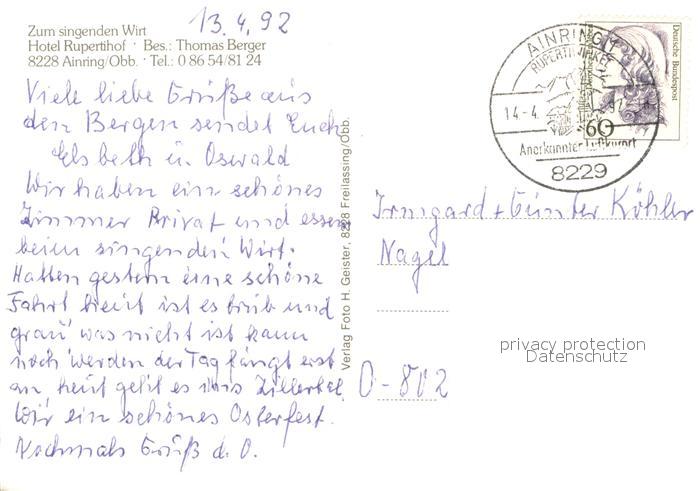 13.4.92
Zum singenden Wirt
Hotel Rupertihof · Bes.: Thomas Berger
8228 Ainring/Obb. · Tel.: 0 86 54/81 24
Viele liebe Grüße aus
den Bergen sendet Euch
Elsbeth u. Oswald
Wir haben ein schönes
Zimmer Privat und essen
beim singenden Wirt.
Hatten gestern eine schöne
Fahrt heut ist es trüb und
grau was nicht ist kann
noch werden der Tag fängt erst
an heut geht es ins Zillertal
Wir ein schönes Osterfest.
Nochmals Grüß d. O.
Verlag Foto H. Geister, 8228 Freilassing/Obb.
AINRING 1
RUPERTIWINKEL
14.-4.
92
Anerkannter Luftkurort
8229
Deutsche Bundespost
60
Irmgard + Günter Köhler
Nagel
O-802
privacy protection
Datenschutz